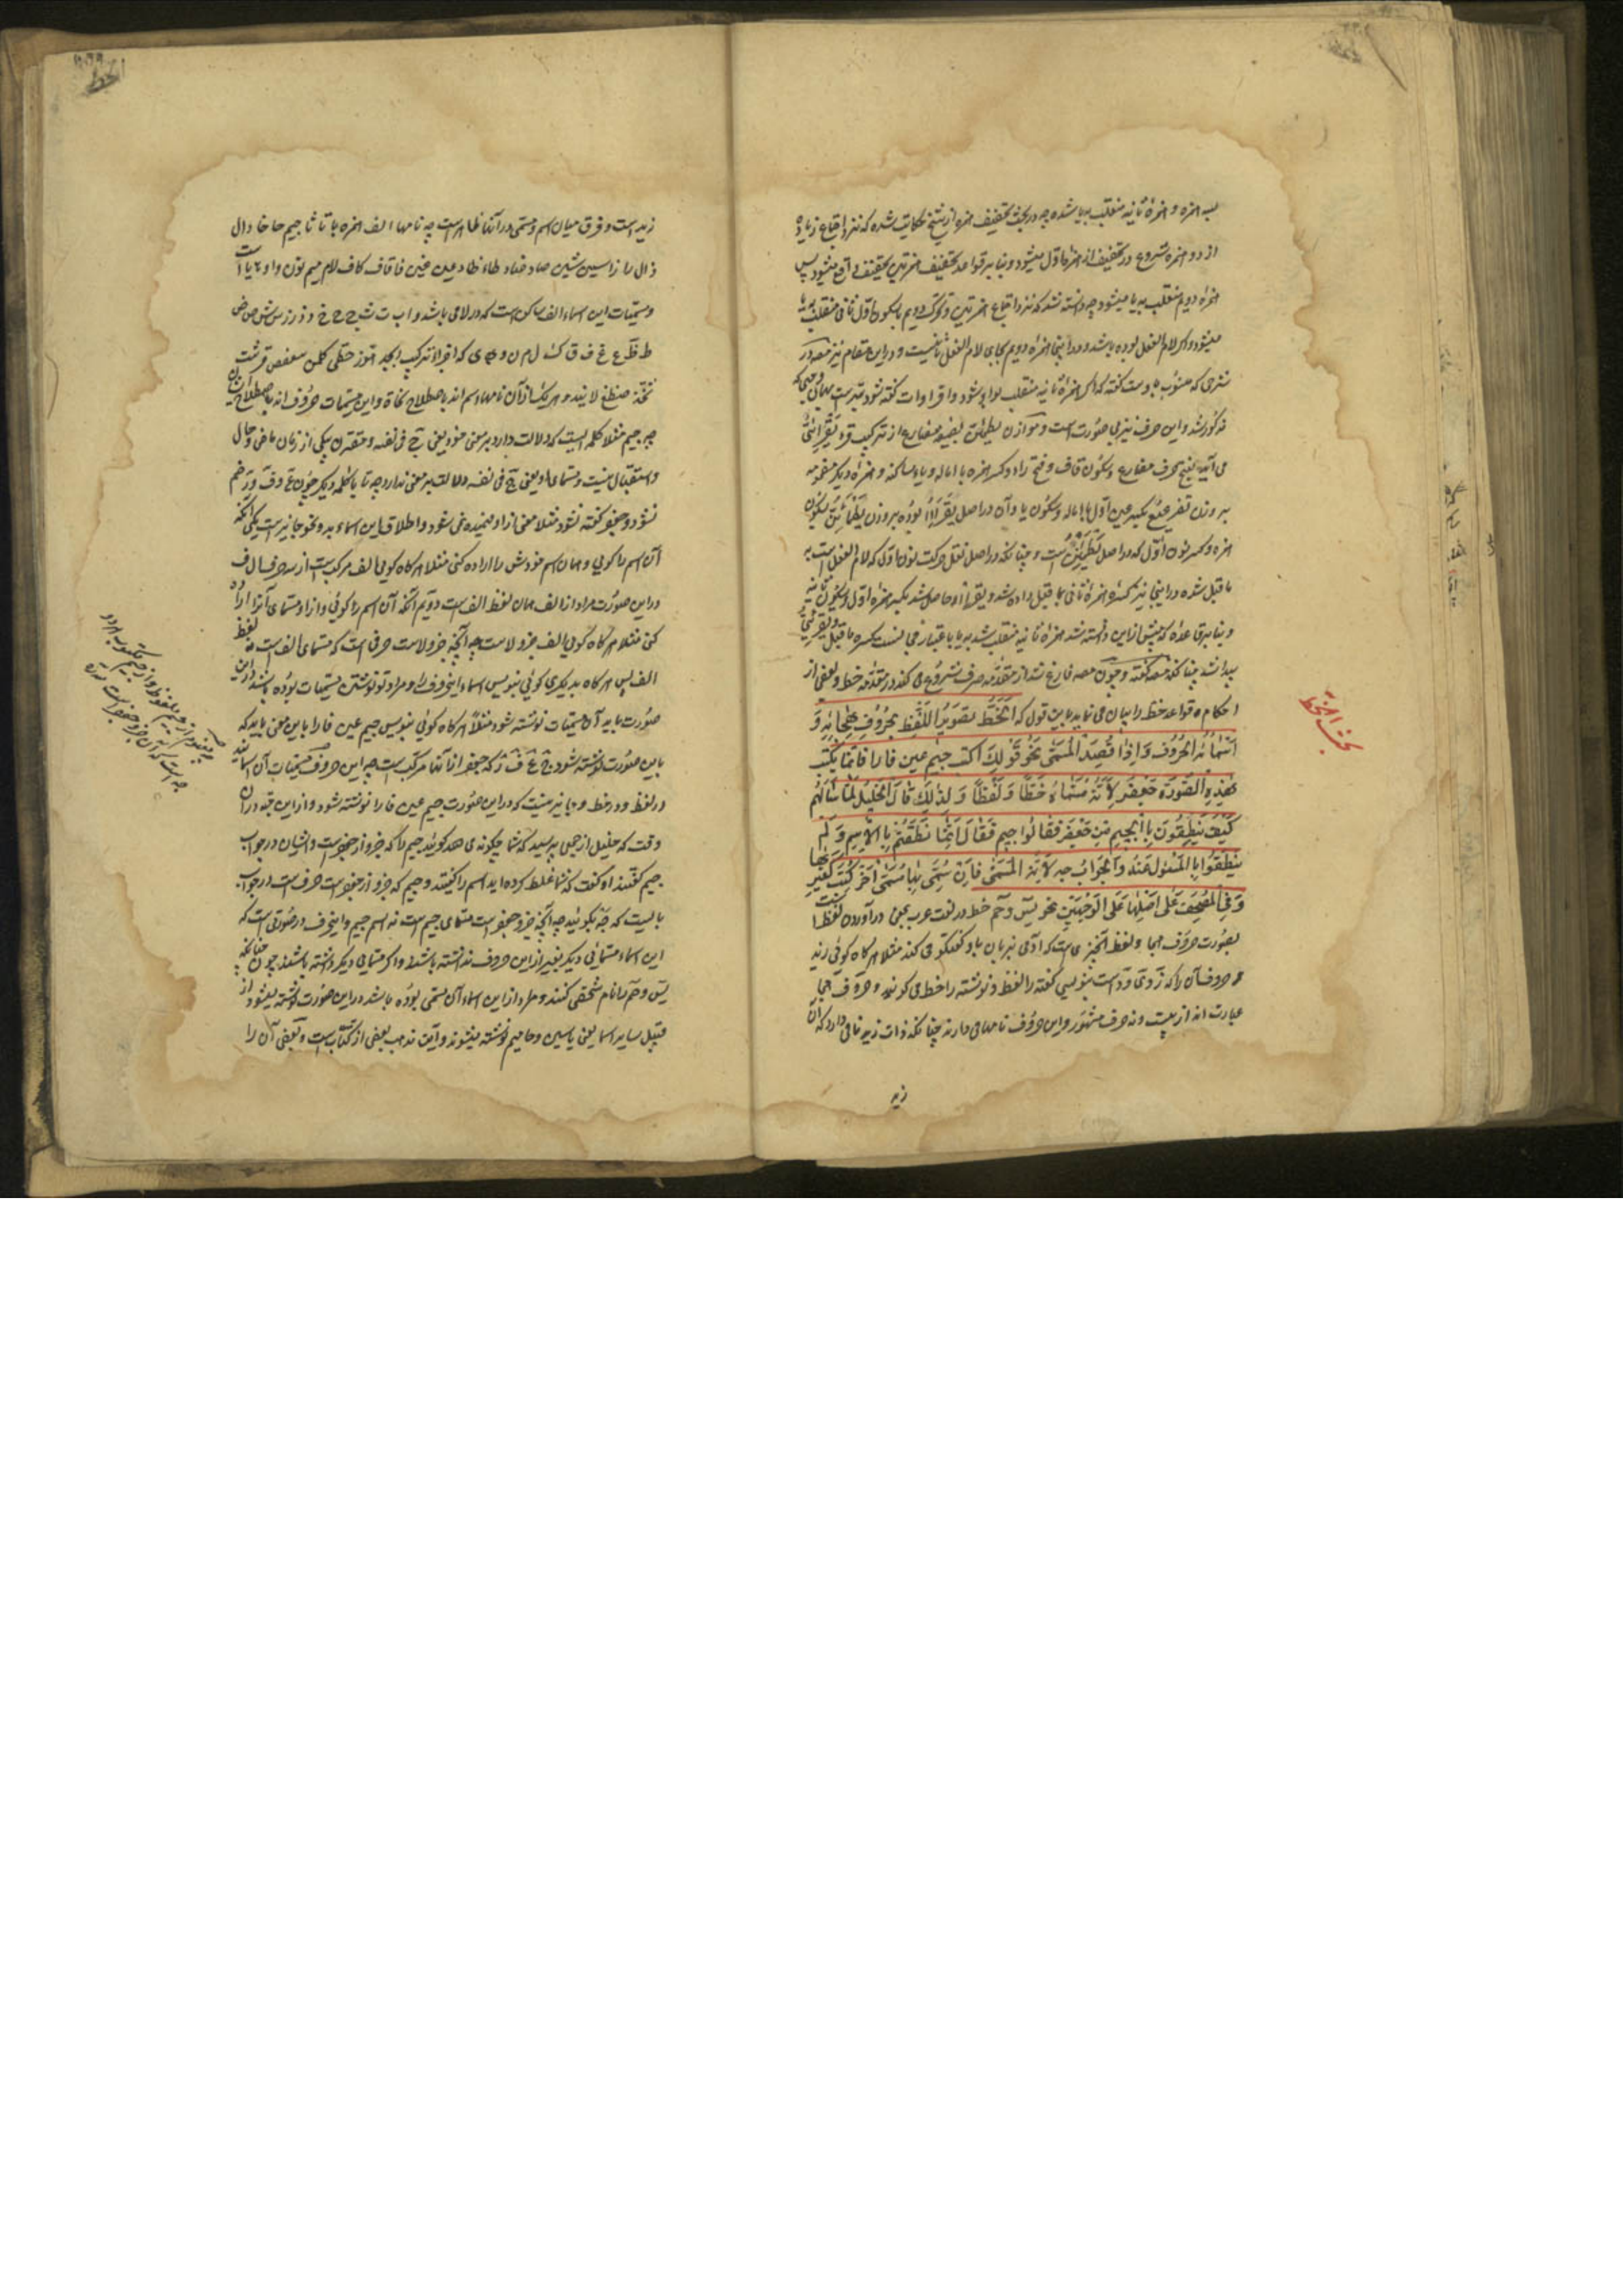 همزه و همزهٔ ثانیه منقلب به یا شده چه در بحث تخفیف همزه از شیخ حکایت شده که نزد اجتماع زیاده
از دو همزه شروع در تخفیف از همزه اول میشود و بنا بر قواعد تخفیف همزتین تخفیف واقع میشود پس
همزه دویم منقلب به یا میشود چه دانسته شد که نزد اجتماع همزتین و تحرک دویم با سکون اول ثانی منقلب به یا
میشود اگر لام الفعل بوده باشد و در اینجا همزه دویم بجای لام الفعل ثانیست و در این مقام نیز مصه در
شرحی که منسوب باوست گفته که اگر همزهٔ ثانیه منقلب بواو شود و اقراوات گفته شود
مذکور شد و این حرف نیز بی صورت است و موازن یطمئن بصیغه مضارع از ترکیب قرء یقرائئ
می آید بفتح حرف مضارع و سکون قاف و فتح راء و کسر همزه با اماله و یاء ساکنه و همزه دیگر مضمومه
بر وزن تقرعیع بکسر عین اول با اماله و سکون یا و آن در اصل یقرأأأ بوده بر وزن یطمأنن بسکون
همزه و کسر نون اول که در اصل یطمئن است و چنانکه در اصل نقل حرکت نون اول که لام الفعل است به
ما قبل شده در اینجا نیز کسره همزهٔ ثانی بما قبل داده شد و یقرأأأ حاصل شد بکسر همزه اول و سکون ثانیه
و بنا بر قاعده که پیش از این دانسته شد همزهٔ ثانیه منقلب شد به یا باعتبار مناسبت کسره ما قبل و یقرئیئ
پیدا شد چنانکه مصه گفته و چون مصه فارغ شد از مقدمه صرف شروع می کند در مقدمه خط و بعضی از
احکام و قواعد خط را بیان می نماید باین قول که الخَطُّ تصویرُ اللَّفظِ بحُرُوفِ هِجائِهِ وَ
اَسْماءُ الحُرُوف وَاِذا قُصِدَ المُسَمّی نحو قَولِکَ اکتب جیم عین فا را فَاِنَّما یُکتَب
هٰذِهِ الصُّورَة جَعفَر لِاَنَّهُ مُسَمّاهُ خَطّاً وَ لَفْظاً وَ لِذٰلِکَ قالَ الخَلیلُ لَمّا سَاَلَهُم
کَیْفَ تَنطِقُونَ بِالجِیمِ مِن جَعفَر فَقالُوا جیم فَقالَ اِنَّما نَطَقْتُم بِالاِسمِ وَ لَم
تَنطِقُوا بِالمَسْئولِ عَنهُ وَالجَوابُ جه لِاَنَّهُ المُسَمّی فَاِن سُمِّیَ بِها مُسَمّیً آخَر کُتِبَت کَغَیرِها
وَ فِی المُصحَف عَلی اَصلِها عَلَی الوَجهَینِ نحو یس و حم خط در لغت عرب بمعنی در آوردن لفظ است
بصورت حروف هجا و لفظ آنچیزی است که آدمی بزبان باو گفتگو می کند مثلا هرگاه کوئی زید
و حروف آن را که ز و ی و د است بنویسی گفته را لفظ و نوشته را خط می گویند و حروف هجا
عبارت اند از بیست و نه حرف مشهور و این حروف نامهای دارند چنانکه ذات زید نامی دارد که آن
زید
بحث الخط
الخط
زید است و فرق میان اسم و مسمی در آنها ظاهر است چه نامها الف همزه با تا ثا جیم حا خا دال
ذال را زا سین شین صاد ضاد طاء ظاء عین غین فا قاف کاف لام میم نون واو ها یا است
و مسمیات این اسماء الف ساکن است که در لا می باشد و ا ب ت ث ج ح خ د ذ ر ز س ش ص ض
ط ظ ع غ ف ق ک ل م ن و ه ی که اجزاء ترکیب ابجد هوز حطی کلمن سعفص قرشت
ثخذ ضظغ لا یند و هر یک از آن نامها اسم اند باصطلاح نحاة و این مسمیات حروف اند باصطلاح ایشان
چه جیم مثلا کلمه ایست که دلالت دارد بر معنی خود یعنی ج فی نفسه و مقترن بیکی از زمان ماضی و حال
و استقبال نیست و مسمای او یعنی ج فی نفسه دلالت بر معنی ندارد چه تا با کلمه دیگر چون ع و ف و ر ضم
نشود و جعفر گفته نشود مثلا معنی از او فهمیده نمی شود و اطلاق این اسماء بدو نحو جایز است یکی آنکه
آن اسم را گوئی و همان اسم خودش را اراده کنی مثلا هرگاه گوئی الف مرکب است از سه حرف ا ل ف
در این صورت مراد از الف همان لفظ الف است دویم آنکه آن اسم را گوئی و از او مسمای آنرا اراده
کنی مثلا هرگاه گوئی الف جزو لاست چه آنچه جزو لاست حرفی است که مسمای الف است نه لفظ
الف پس هرگاه بدیگری گوئی بنویس اسماء این حروف را و مراد تو نوشتن مسمیات بوده باشد در این
صورت باید آن مسمیات نوشته شود مثلاً هرگاه گوئی بنویس جیم عین فا را باین معنی باید که
باین صورت نوشته شود ج ع ف ر که جعفر از آنها مرکب است چه این حروف مسمیات آن اسمایند
در لفظ و در خط و جایز نیست که در این صورت جیم عین فا را نوشته شود و از این جهة در آن
وقت که خلیل از جمعی پرسید که شما چگونه می گوئید جیم را که جزو از جعفر است و ایشان در جواب
جیم گفتند او گفت که شما غلط کرده اید اسم را گفتید و جیم که جزو از جعفر است حرف است در جواب
بایست که جه بگوئید چه آنچه جزو جعفر است مسمای جیم است نه اسم جیم و این حرف در صورتی است که
این اسماء مسمائی دیگر بغیر از این حروف نداشته باشند و اگر مسمای دیگر داشته باشند چون چنانکه
یس و حم را نام شخصی کنند و مراد از این اسماء آن مسمی بوده باشد در این صورت نوشته میشود از
قبیل سایر اسما یعنی یاسین و حامیم نوشته میشوند و این مذهب بعضی از کتاب است و بعضی آن را